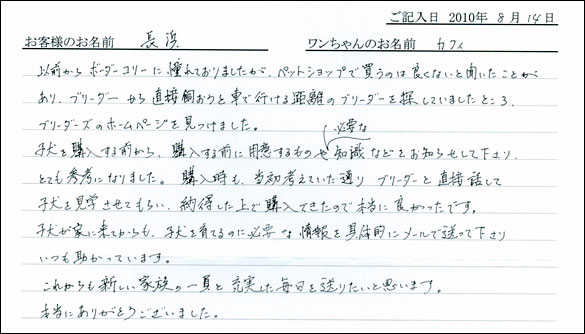 ご記入日 2010年 8月 14日
お客様のお名前 長浜 ワンちゃんのお名前 カフィ
以前からボーダーコリーに憧れておりましたが、ペットショップで買うのは良くないと聞いたことが
あり、ブリーダーから直接飼おうと車で行ける距離のブリーダーを探していましたところ、
ブリーダーズのホームページを見つけました。
必要な
子犬を購入する前から、購入する前に用意するものや知識などをお知らせして下さり、
とても参考になりました。購入時も、当初考えていた通りブリーダーと直接話して
子犬を見学させてもらい、納得した上で購入できたので本当に良かったです。
子犬が家に来てからも、子犬を育てるのに必要な情報を具体的にメールで送って下さり
いつも助かっています。
これからも新しい家族の一員と充実した毎日を送りたいと思います。
本当にありがとうございました。